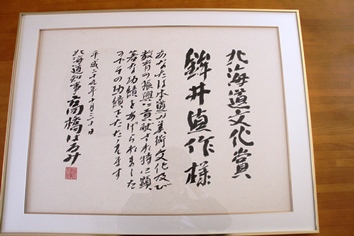 北海道文化賞
鉾井直作様
あなたは本道の美術文化及び
教育の振興に貢献され特に顕
著な功績をあげられました
よってその功績をたたえます
平成二十九年十月三十日
北海道知事 高橋はるみ